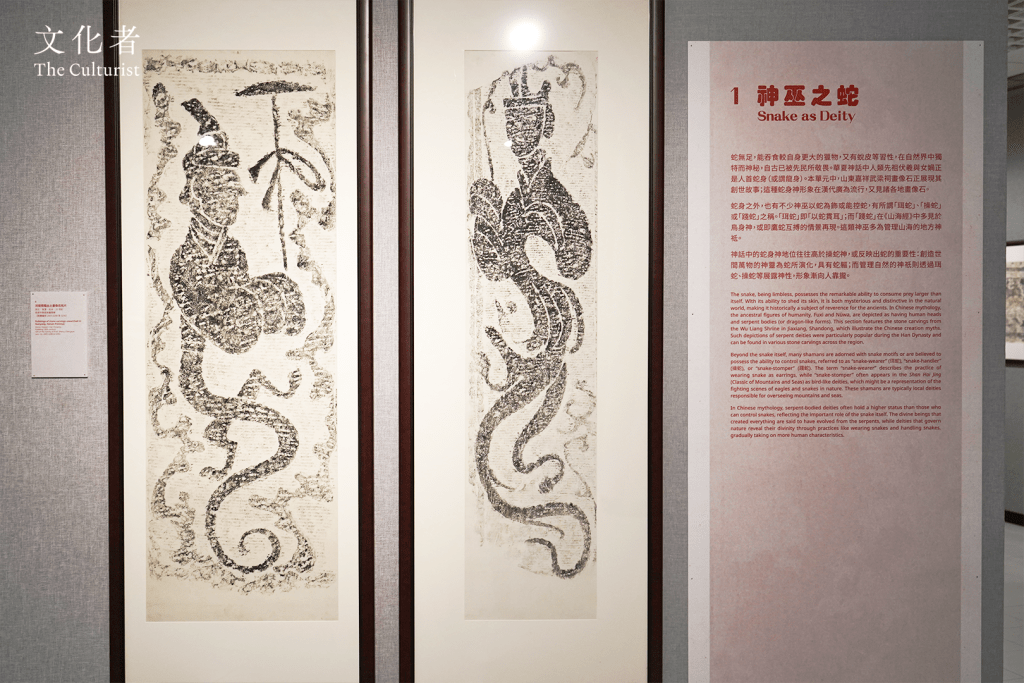 文化者
The Culturist
1 神巫之蛇
Snake as Deity
蛇無足，能吞食較自身更大的獵物，又有蛻皮等習性，在自然界中獨
特而神秘，自古已被先民所敬畏。華夏神話中人類先祖伏羲與女媧正
是人首蛇身（或謂龍身）。本單元中，山東嘉祥武梁祠畫像石正展現其
創世故事；這種蛇身神形象在漢代廣為流行，又見諸各地畫像石。
蛇身之外，也有不少神巫以蛇為飾或能控蛇，有所謂「珥蛇」、「操蛇」
或「踐蛇」之稱。「珥蛇」即「以蛇貫耳」；而「踐蛇」在《山海經》中多見於
鳥身神，或即鷹蛇互搏的情景再現。這類神巫多為管理山海的地方神
祇。
神話中的蛇身神地位往往高於操蛇神，或反映出蛇的重要性：創造世
間萬物的神靈為蛇所演化，具有蛇軀；而管理自然的神祇則透過珥
蛇、操蛇等展露神性，形象漸向人靠攏。
The snake, being limbless, possesses the remarkable ability to consume prey larger than
itself. With its ability to shed its skin, it is both mysterious and distinctive in the natural
world, making it historically a subject of reverence for the ancients. In Chinese mythology,
the ancestral figures of humanity, Fuxi and Nüwa, are depicted as having human heads
and serpent bodies (or dragon-like forms). This section features the stone carvings from
the Wu Liang Shrine in Jiaxiang, Shandong, which illustrate the Chinese creation myths.
Such depictions of serpent deities were particularly popular during the Han Dynasty and
can be found in various stone carvings across the region.
Beyond the snake itself, many shamans are adorned with snake motifs or are believed to
possess the ability to control snakes, referred to as "snake-wearer" (珥蛇), "snake-handler"
(操蛇), or "snake-stomper" (踐蛇). The term "snake-wearer" describes the practice of
wearing snake as earrings, while "snake-stomper" often appears in the Shan Hai Jing
(Classic of Mountains and Seas) as bird-like deities, which might be a representation of the
fighting scenes of eagles and snakes in nature. These shamans are typically local deities
responsible for overseeing mountains and seas.
In Chinese mythology, serpent-bodied deities often hold a higher status than those who
can control snakes, reflecting the important role of the snake itself. The divine beings that
created everything are said to have evolved from the serpents, while deities that govern
nature reveal their divinity through practices like wearing snakes and handling snakes,
gradually taking on more human characteristics.